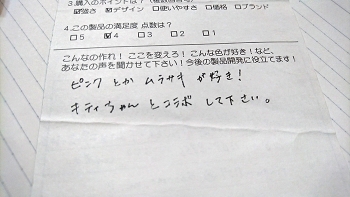 3.購入のポイントは?(複数回答可)
☑強さ ☑デザイン □使いやすさ □価格 □ブランド
4.この製品の満足度 点数は?
□5 ☑4 □3 □2 □1
こんなの作れ!ここを変えろ!こんな色が好き!など、
あなたの声を聞かせて下さい!今後の製品開発に役立てます!
ピンクとかムラサキが好き!
キティちゃんとコラボして下さい。